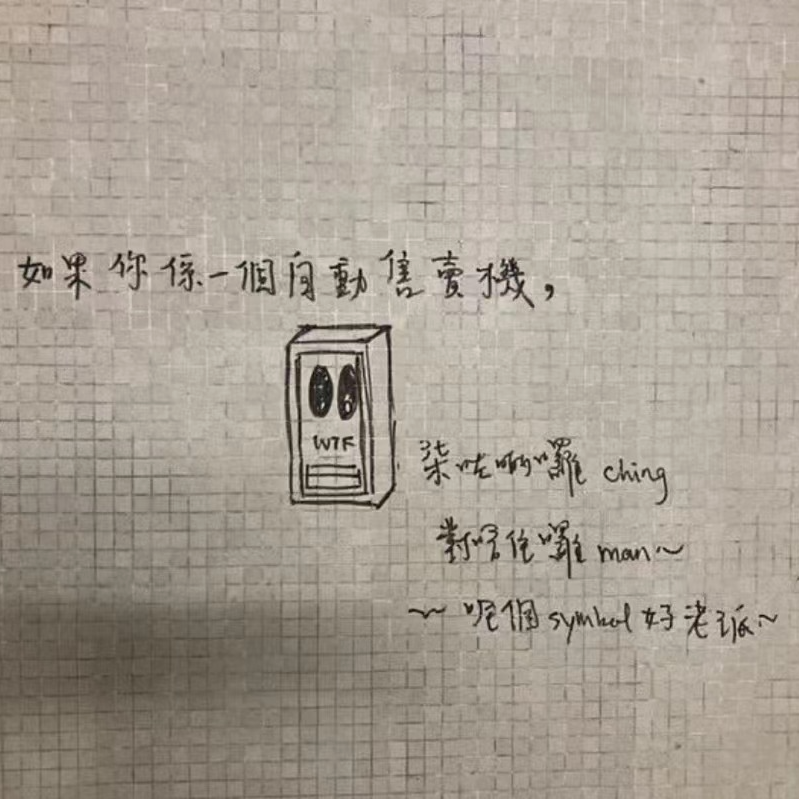 如果你係一個自動售賣機,
WTF
柒咗啊囉 ching
對唔住囉 man~
~ 呢個 symbol 好老派~